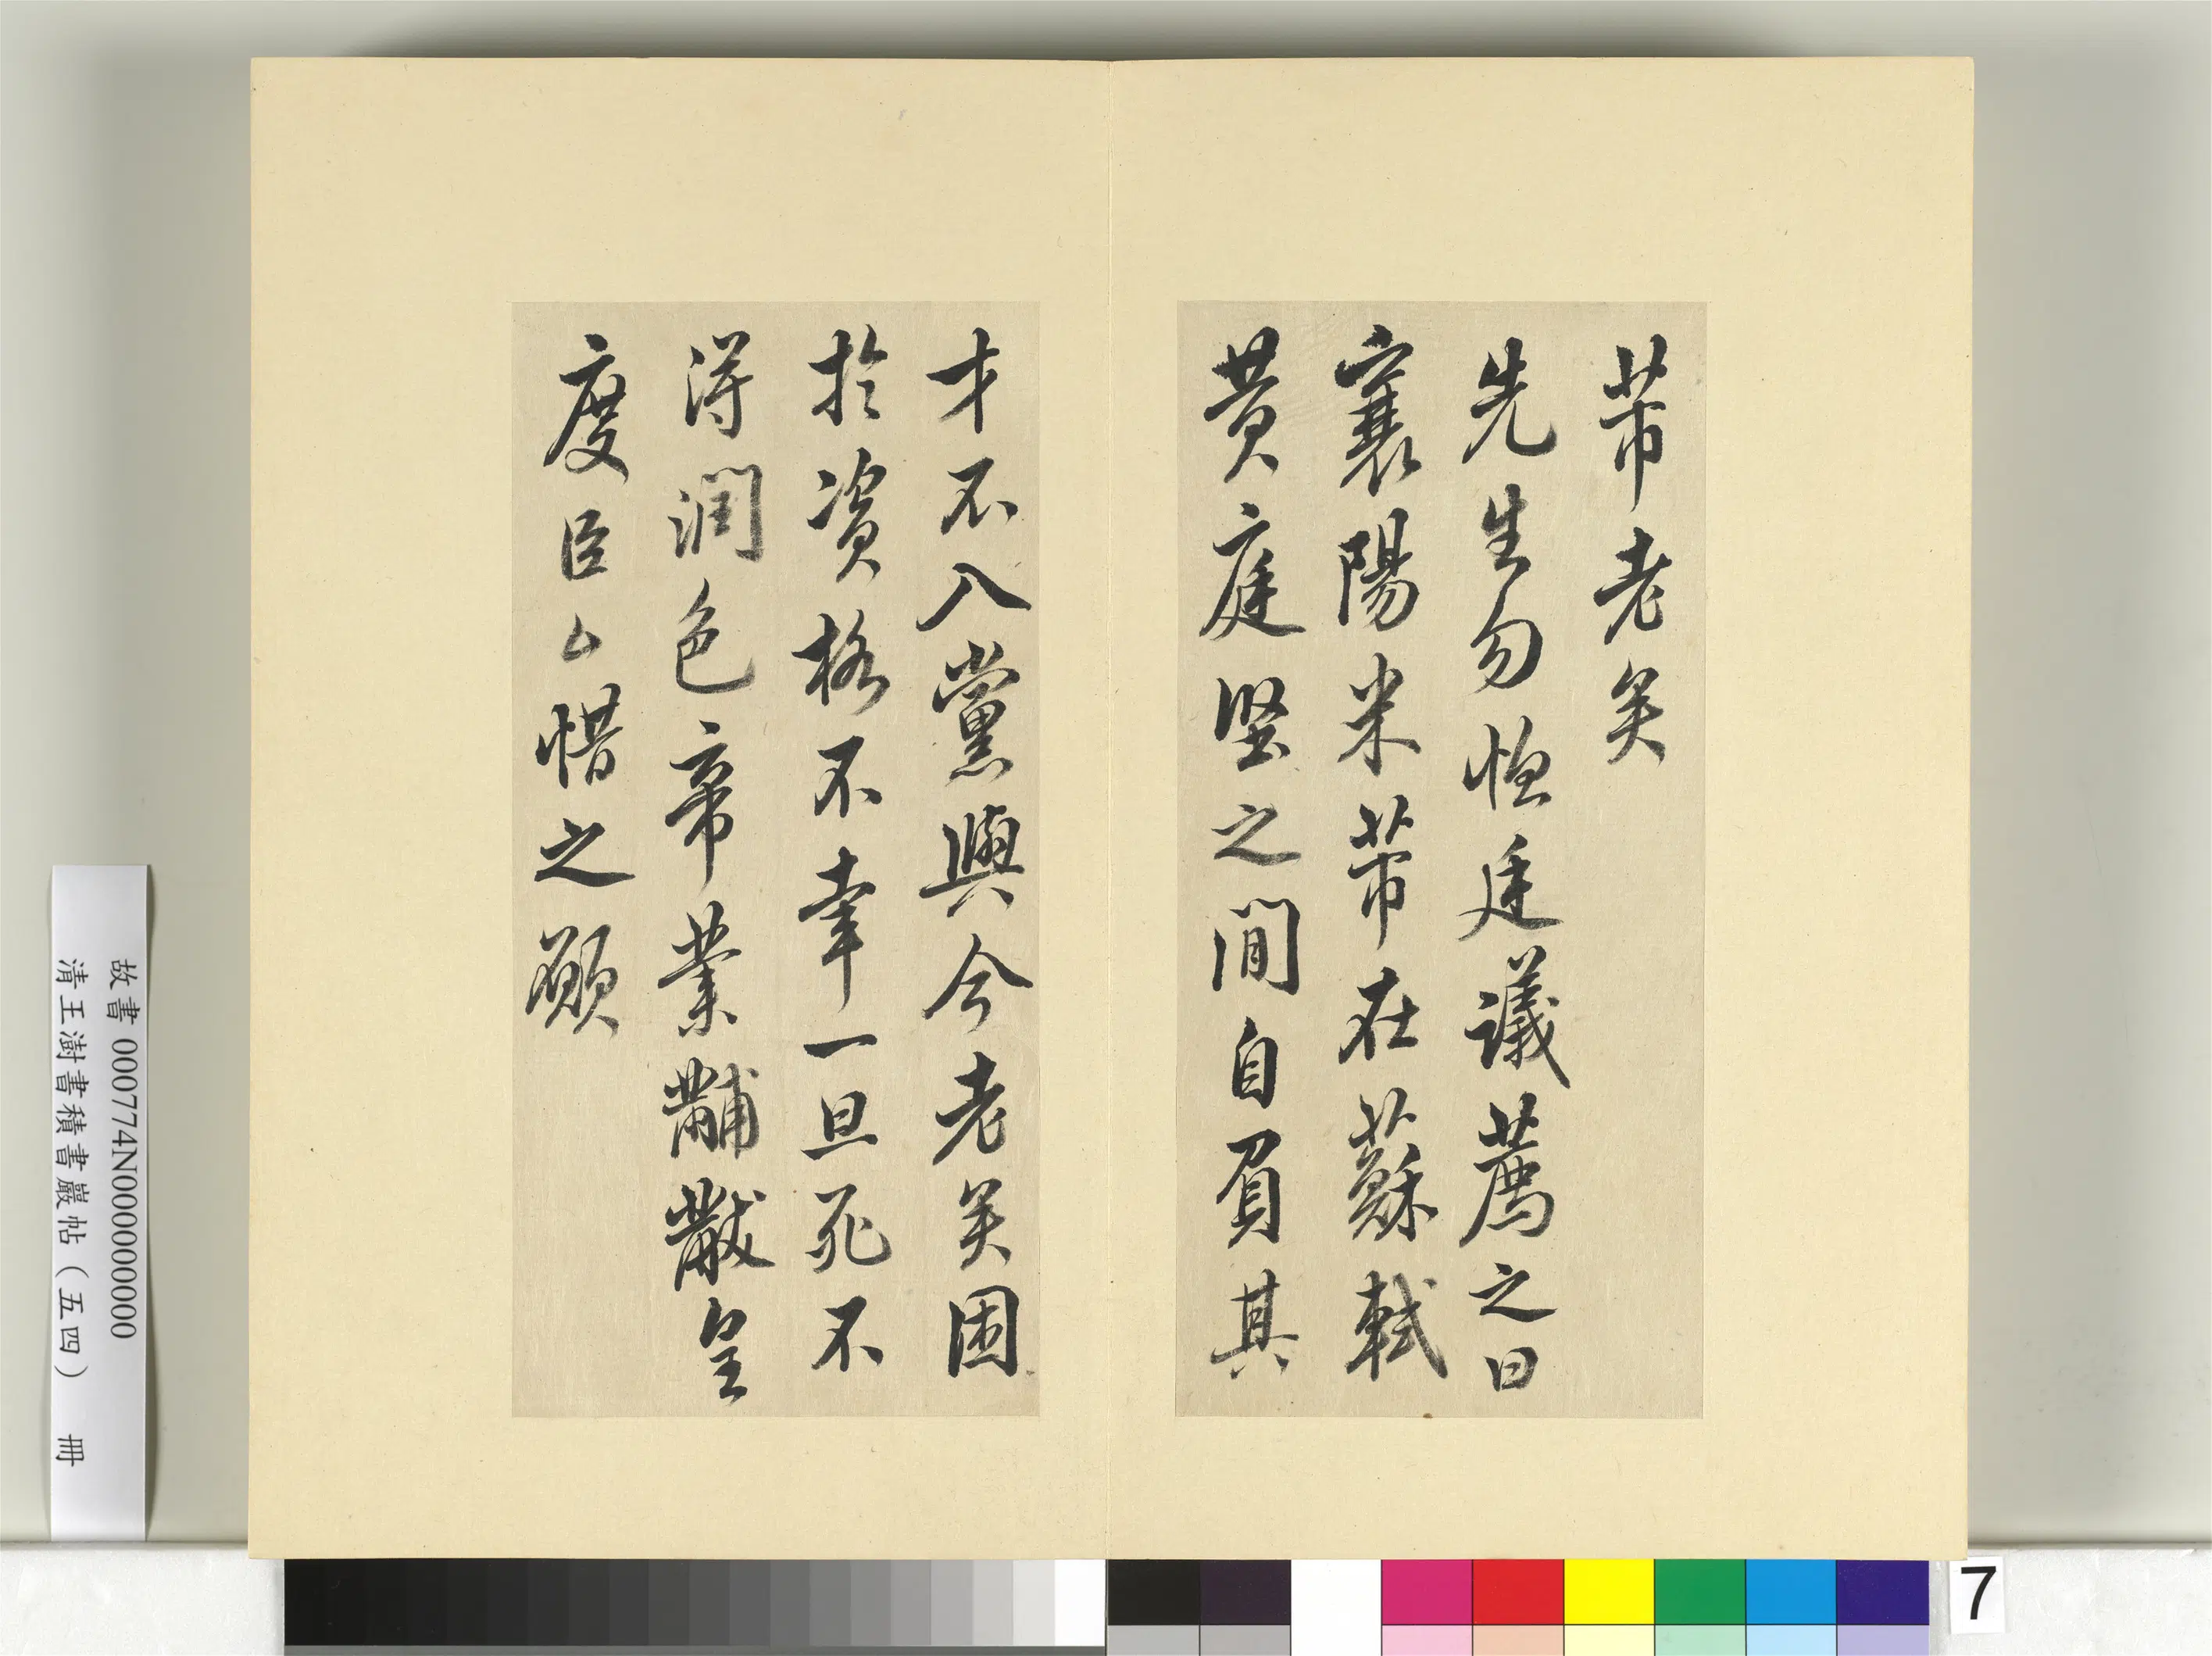 芾老矣
先生勿恤廷議薦之曰
襄陽米芾在蘇軾
黃庭堅之間自負其
才不入黨與今老矣困
於資格不幸一旦死不
得潤色帝業黼黻皇
度臣厶惜之願
故書 000774N000000000
清王澍書積書巖帖（五四） 冊
7